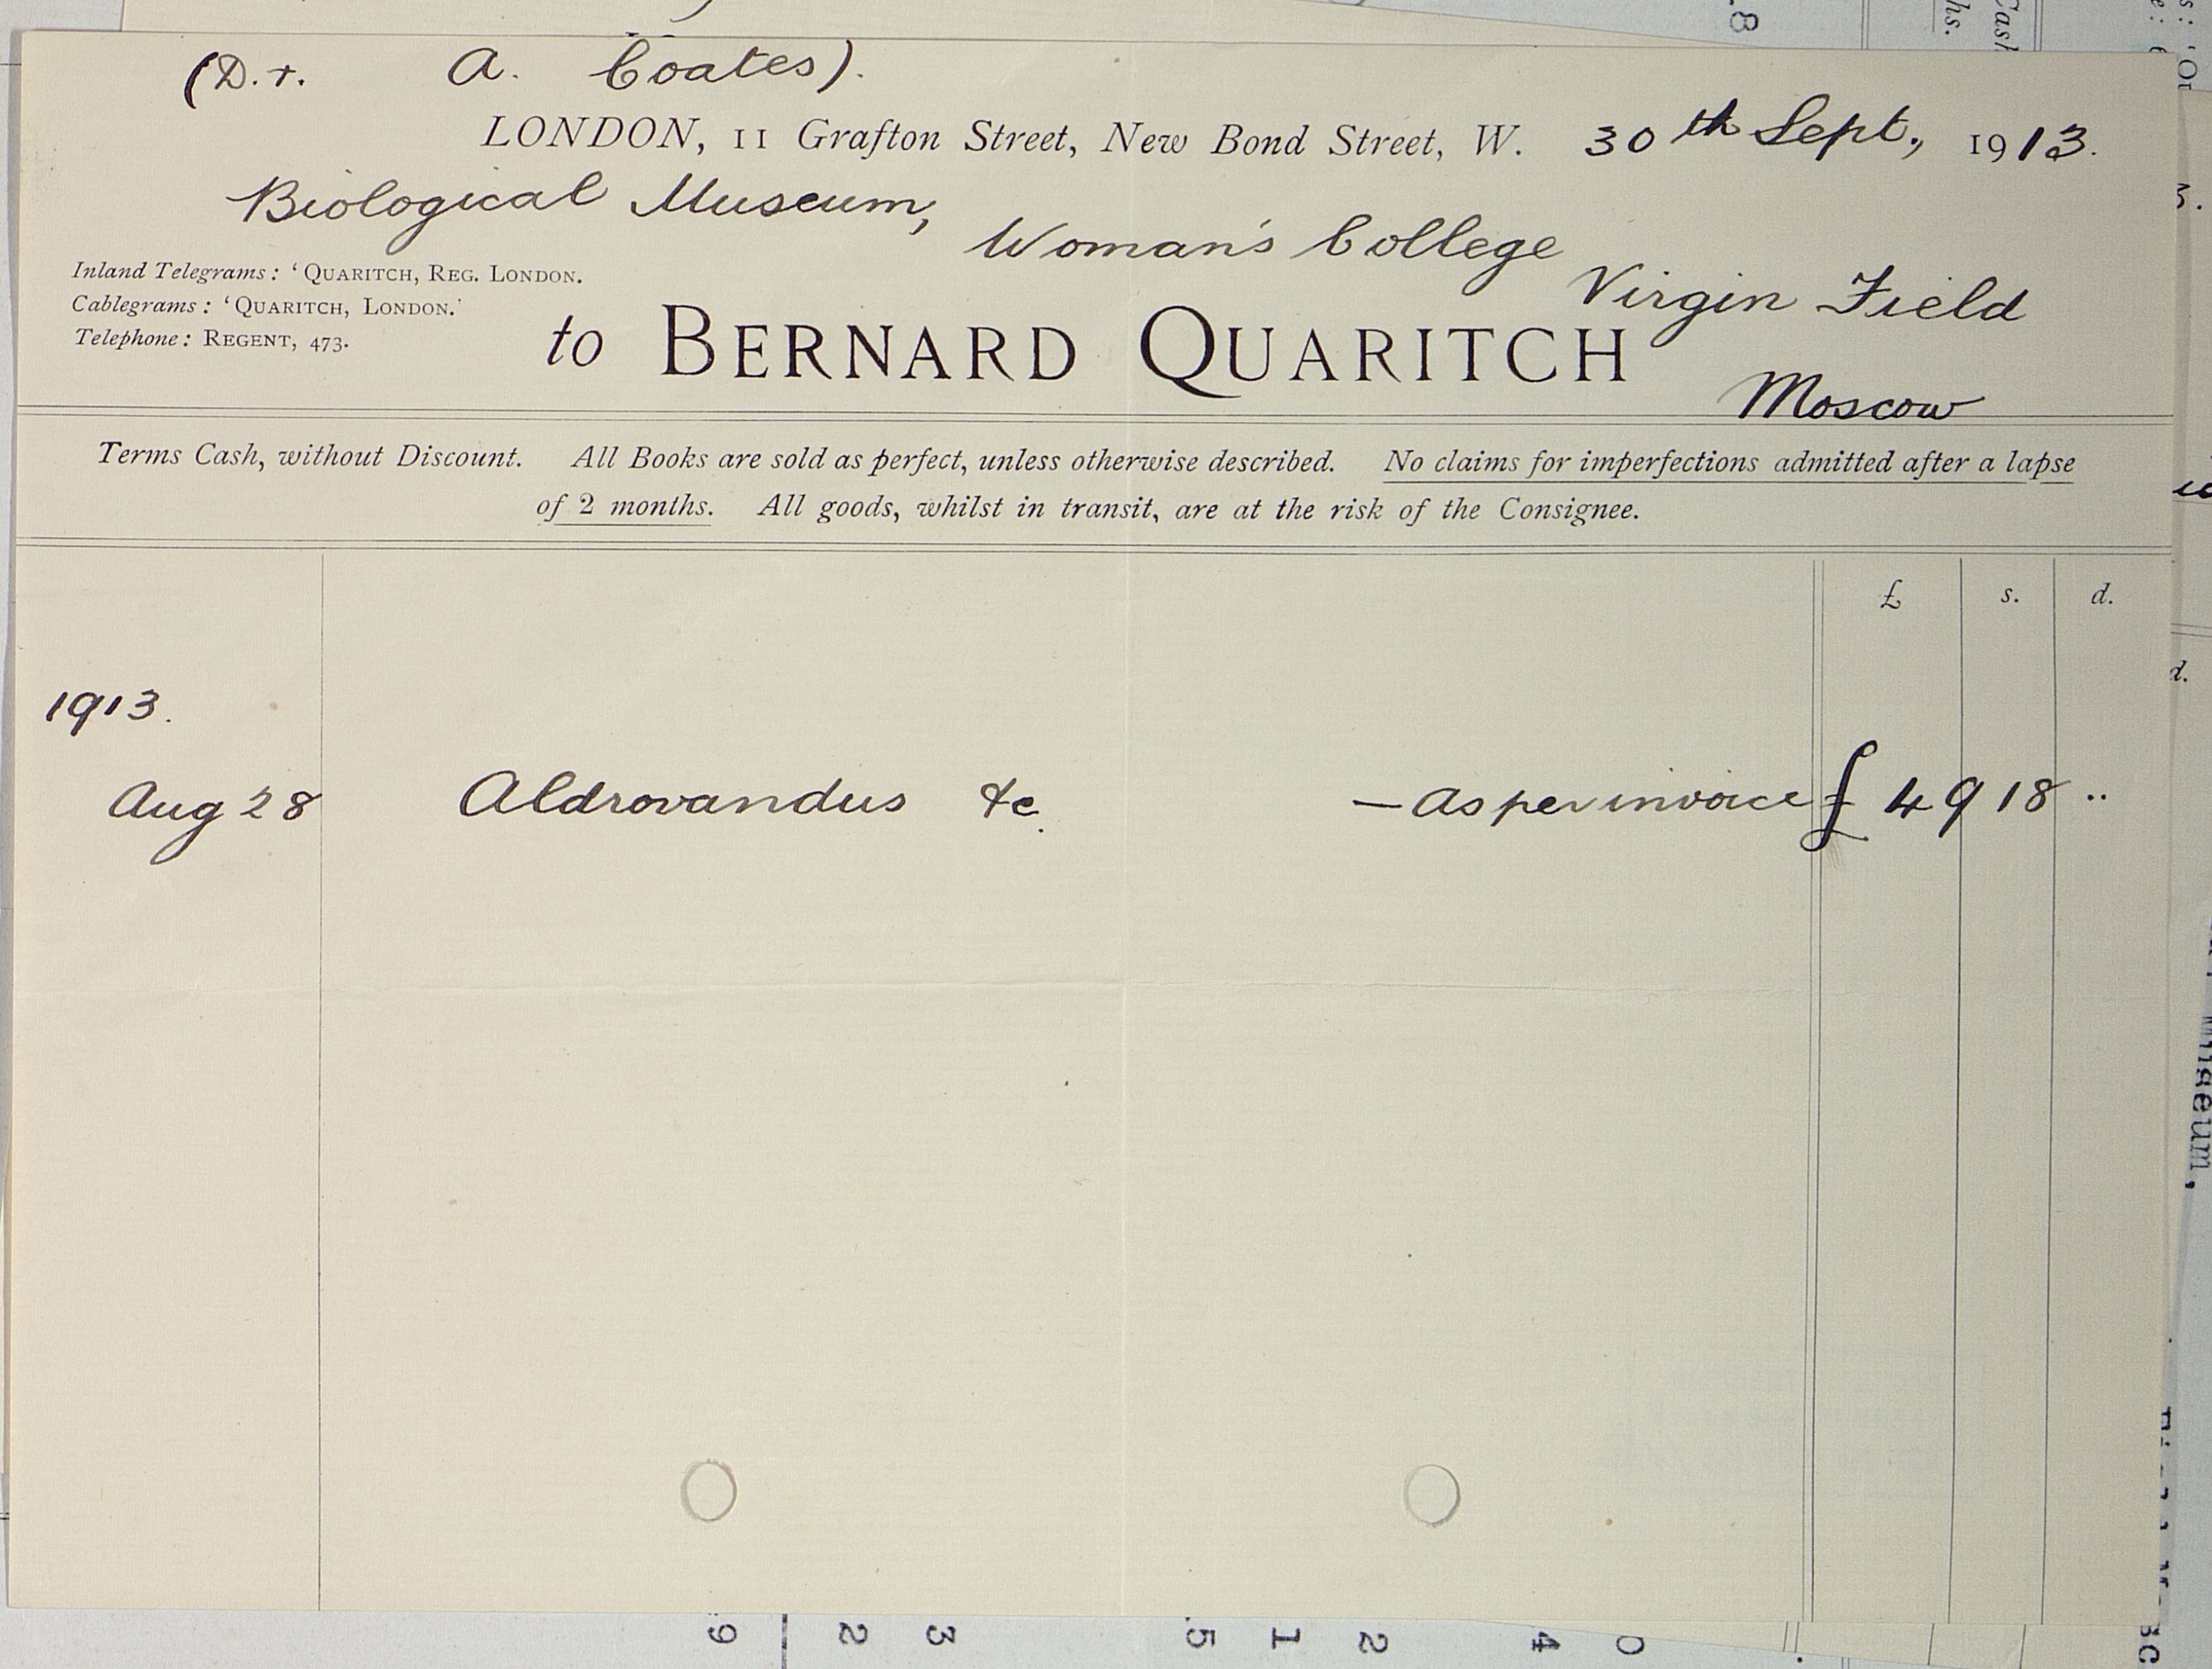 (Dr. A. Coates).
LONDON, 11 Grafton Street, New Bond Street, W. 30th Sept., 1913.
Biological Museum,
Woman's College
Virgin Field
Moscow
Inland Telegrams: ‘QUARITCH, REG. LONDON.
Cablegrams: ‘QUARITCH, LONDON.’
Telephone: REGENT, 473.
to BERNARD QUARITCH
Terms Cash, without Discount. All Books are sold as perfect, unless otherwise described. No claims for imperfections admitted after a lapse
of 2 months. All goods, whilst in transit, are at the risk of the Consignee.
£ s. d.
1913.
Aug 28 Aldrovandus &c. — As per invoice £ 49 18 ..
8
hs.
Cash
d.
Museum,
9 2 3 5 1 2 4 0